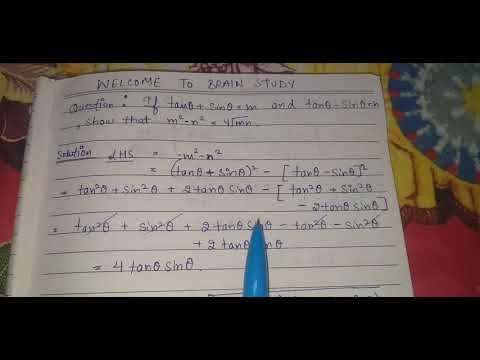 WELCOME TO BRAIN STUDY
Question : If tanθ + sinθ = m and tanθ - Sinθ = n
, show that m² - n² = 4√mn.
Solution LHS = m² - n²
= (tanθ + sinθ)² - [tanθ - sinθ]²
= tan²θ + sin²θ + 2 tanθ sinθ - [tan²θ + sin²θ
- 2 tanθ sinθ]
= tan²θ + sin²θ + 2 tanθ sinθ - tan²θ - sin²θ
+ 2 tanθ sinθ
= 4 tanθ sinθ.